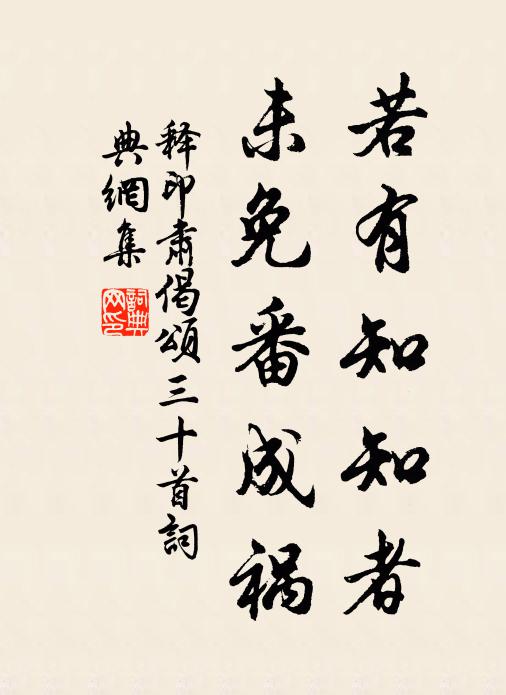 若有知知者
未免番成祸
释印肃偈颂三十首詞
典網集
詞典網印